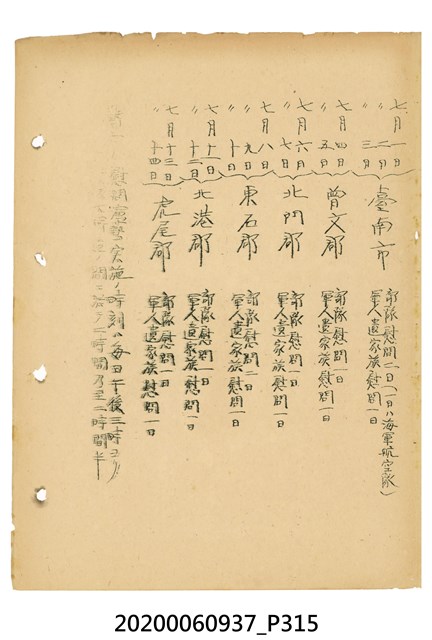 七月一日
〃二日
〃三日
臺南市
部隊慰問二日(一日ハ海軍航空隊)
軍人遺家族慰問一日
七月四日
〃五日
曾文郡
部隊慰問一日
軍人遺家族慰問一日
七月六日
〃七日
北門郡
部隊慰問一日
軍人遺家族慰問一日
七月八日
〃九日
〃十日
東石郡
部隊慰問一日
軍人遺家族慰問一日
七月十一日
〃十二日
北港郡
部隊慰問一日
軍人遺家族慰問一日
七月十三日
〃十四日
虎尾郡
部隊慰問一日
軍人遺家族慰問一日
慰問演藝実施ノ時刻ハ毎日午後三時ヨリ
時間乃至二時間半
20200060937_P315